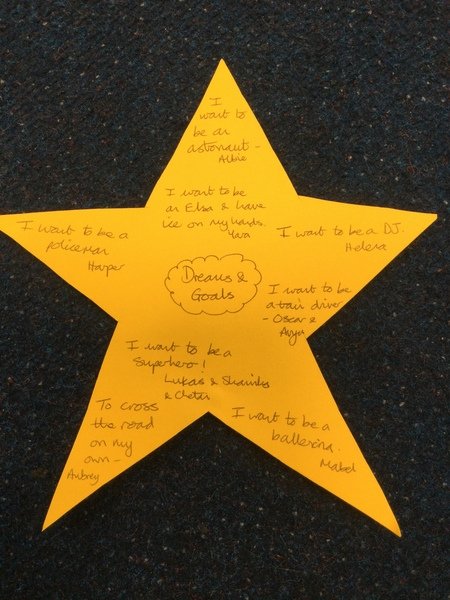 I
want to
be an
astonaut -
Albie
I want to be
an Elsa & have
ice on my hands.
Yara
I want to be a
policeman
Harper
I want to be a DJ.
Helena
Dreams &
Goals
I want to be
a train driver
- Oscar &
Anya
I want to be a
superhero!
Lukas &
& Chetan
To cross
the road
on my
own -
Aubrey
I want to be a
ballerina.
Mabel